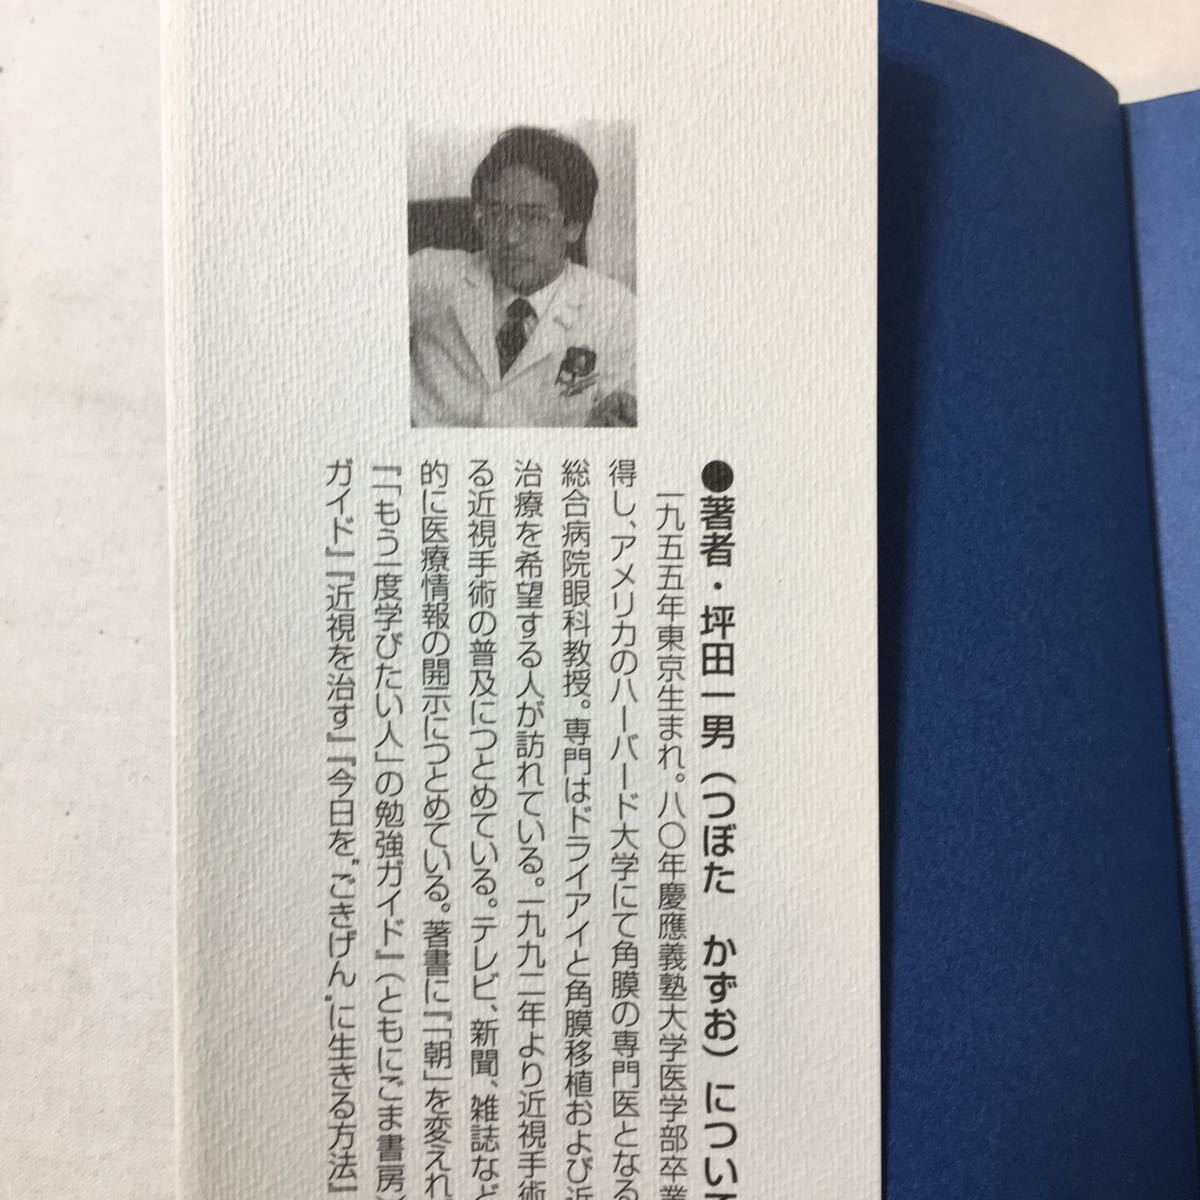 ●著者・坪田一男（つぼた　かずお）について
一九五五年東京生まれ。八〇年慶應義塾大学医学部卒業
得し、アメリカのハーバード大学にて角膜の専門医となる
総合病院眼科教授。専門はドライアイと角膜移植および近
治療を希望する人が訪れている。一九九二年より近視手術
る近視手術の普及につとめている。テレビ、新聞、雑誌など
的に医療情報の開示につとめている。著書に『「朝」を変えれ
『「もう一度学びたい人」の勉強ガイド』（ともにごま書房）
ガイド』『近視を治す』『今日を〝ごきげん〟に生きる方法』